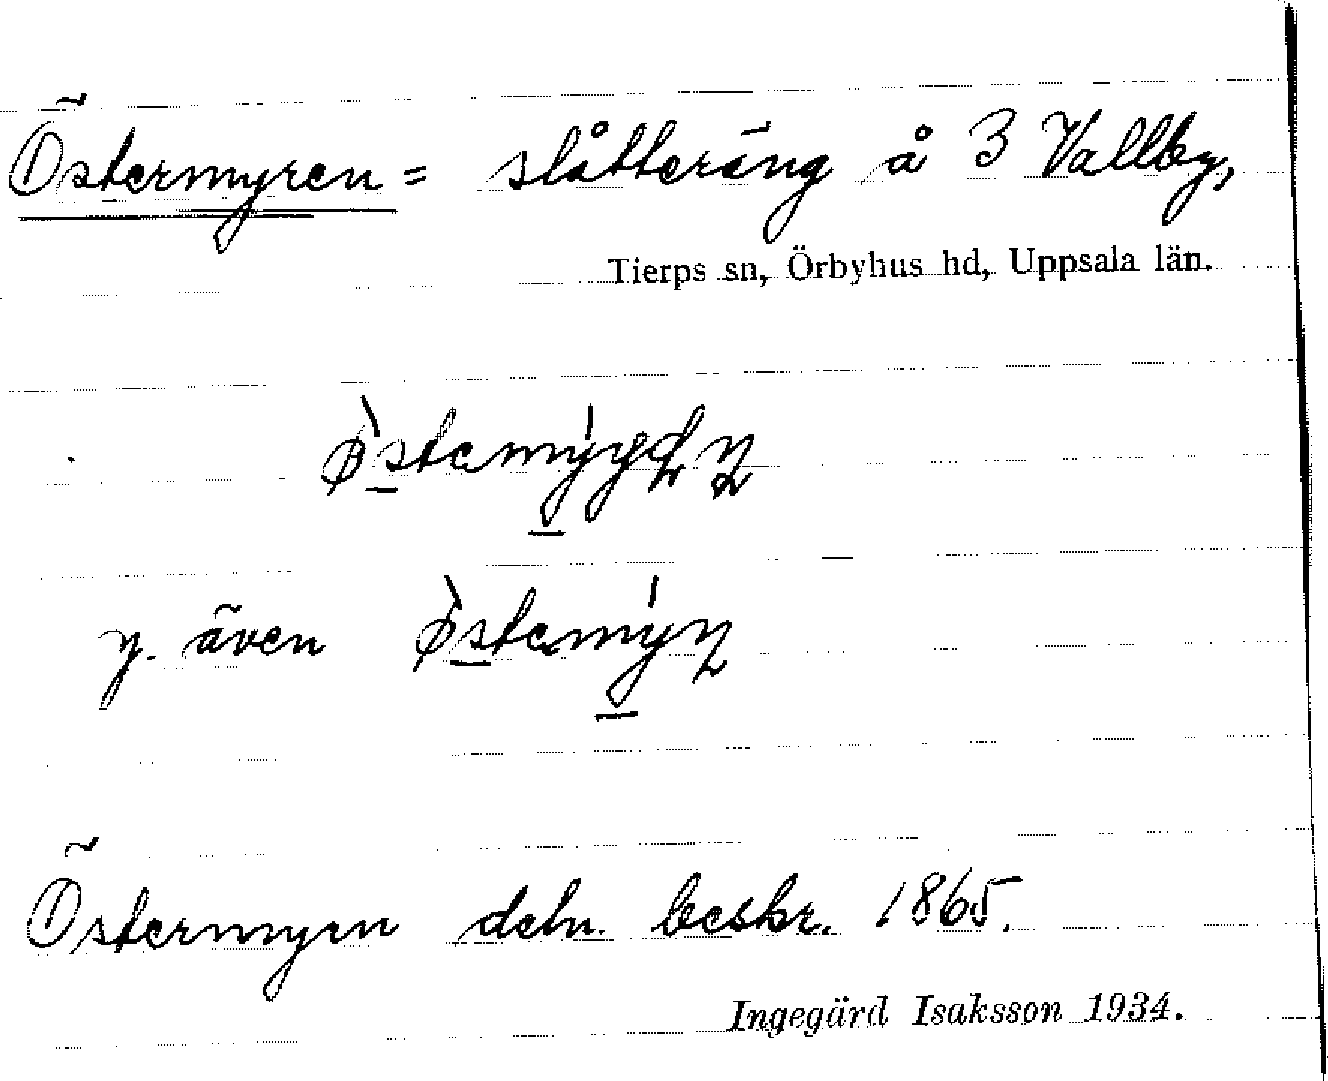 Östermyren = slåtteräng å 3 Vallby,
Tierps sn, Örbyhus hd, Uppsala län.
y. även
Östermyrn deln. beskr. 1865.
Ingegärd Isaksson 1934.